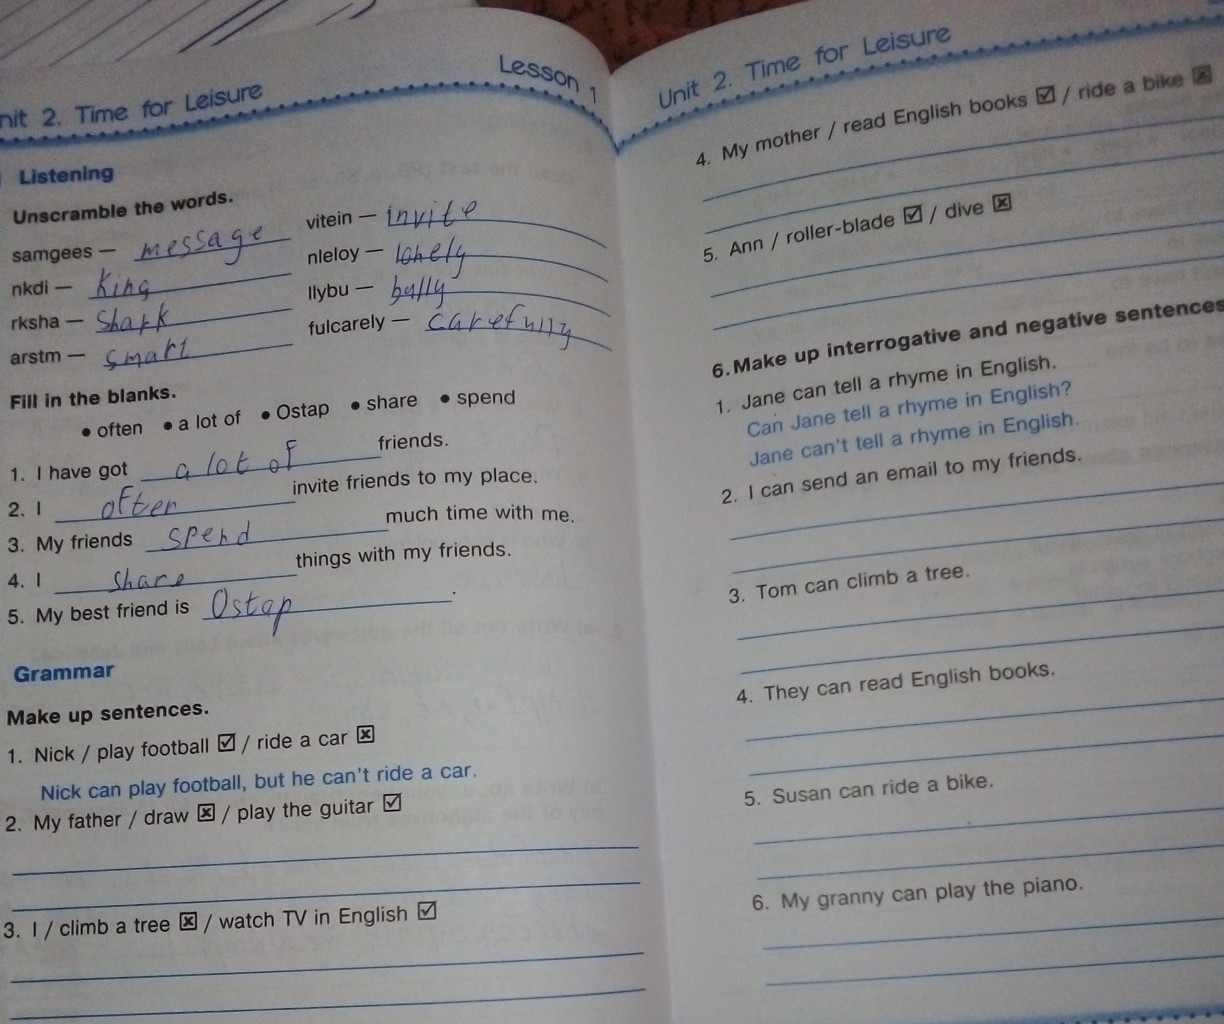 nit 2. Time for Leisure Lesson 1
Listening
Unscramble the words.
samgees — message
nkdi — King
rksha — Shark
arstm — smart
vitein — invite
nleloy — lonely
llybu — bully
fulcarely — carefully
Fill in the blanks.
• often • a lot of • Ostap • share • spend
1. I have got a lot of friends.
2. I often invite friends to my place.
3. My friends spend much time with me.
4. I share things with my friends.
5. My best friend is Ostap.
Grammar
Make up sentences.
1. Nick / play football ☑ / ride a car ☒
Nick can play football, but he can't ride a car.
2. My father / draw ☒ / play the guitar ☑
3. I / climb a tree ☒ / watch TV in English ☑
Unit 2. Time for Leisure
4. My mother / read English books ☑ / ride a bike ☒
5. Ann / roller-blade ☑ / dive ☒
6. Make up interrogative and negative sentences
1. Jane can tell a rhyme in English.
Can Jane tell a rhyme in English?
Jane can't tell a rhyme in English.
2. I can send an email to my friends.
3. Tom can climb a tree.
4. They can read English books.
5. Susan can ride a bike.
6. My granny can play the piano.